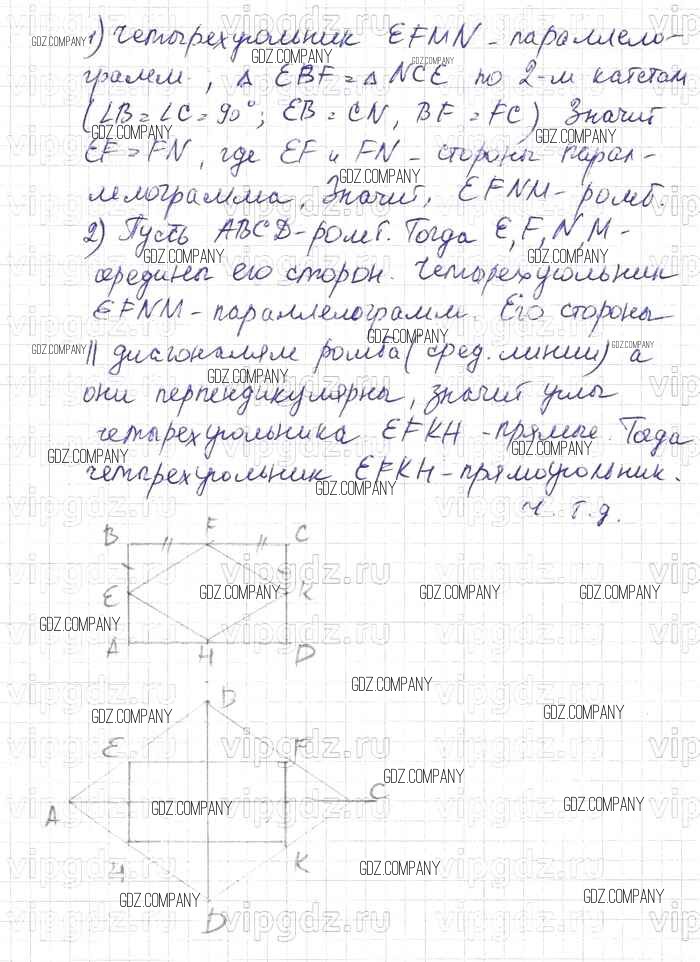 1) Четырехугольник EFMN - параллело-
грамм, Δ EBF = Δ NCE по 2-м катетам
(∠B = ∠C = 90°; EB = CN, BF = FC) Значит
EF = FN, где EF и FN - стороны парал-
лелограмма. Значит, EFNM - ромб.
2) Пусть ABCD - ромб. Тогда E, F, N, M -
середины его сторон. Четырехугольник
EFNM - параллелограмм. Его стороны
|| диагоналям ромба (сред. линии) а
они перпендикулярны, значит углы
четырехугольника EFKH - прямые. Тогда
четырехугольник EFKH - прямоугольник.
Ч. т. д.
B F C
E K
A H D
B
E F
A C
H K
D
GDZ.COMPANY
vipgdz.ru